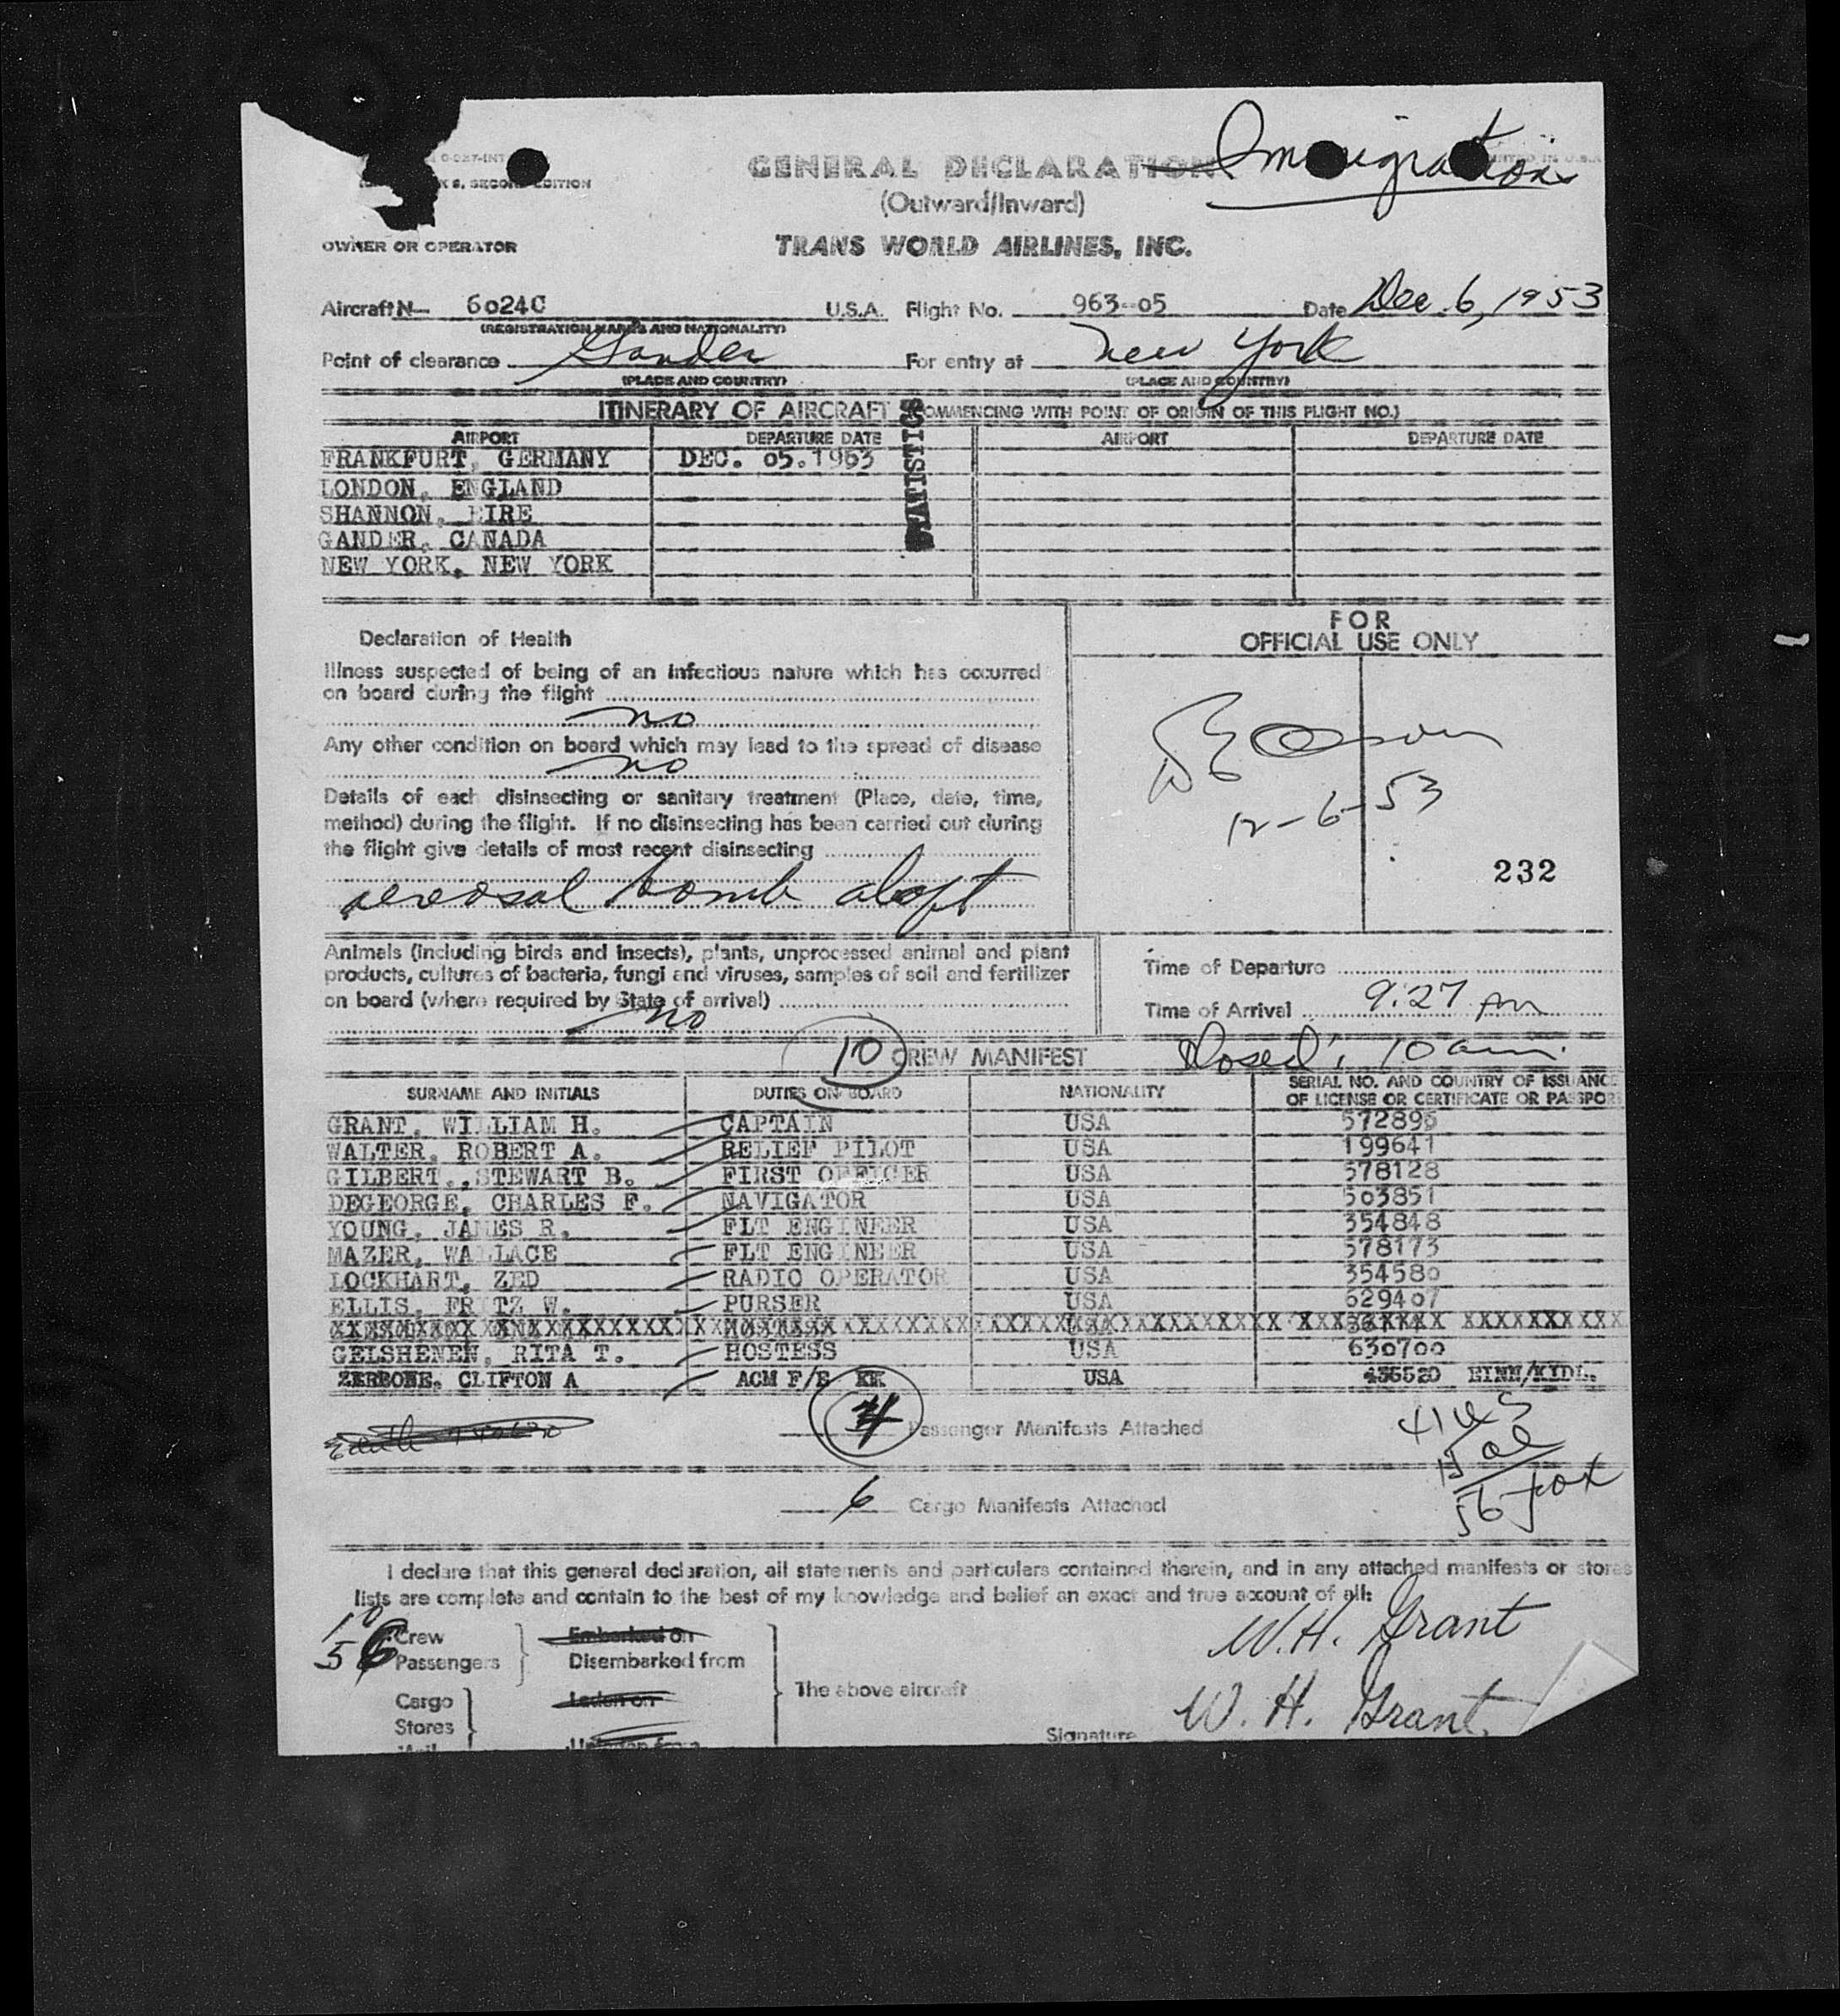 0-027-INT
K 8, SECOND EDITION
GENERAL DECLARATION
Immigration
(Outward/Inward)
OWNER OR OPERATOR
TRANS WORLD AIRLINES, INC.
Aircraft N- 6024C U.S.A. Flight No. 963-05 Date Dec. 6, 1953
(REGISTRATION MARKS AND NATIONALITY)
Point of clearance Gander For entry at New York
(PLACE AND COUNTRY) (PLACE AND COUNTRY)
ITINERARY OF AIRCRAFT COMMENCING WITH POINT OF ORIGIN OF THIS FLIGHT NO.)
STATISTICS
AIRPORT DEPARTURE DATE AIRPORT DEPARTURE DATE
FRANKFURT, GERMANY DEC. 05.1953
LONDON, ENGLAND
SHANNON, EIRE
GANDER, CANADA
NEW YORK, NEW YORK
FOR
OFFICIAL USE ONLY
Declaration of Health
Illness suspected of being of an infectious nature which has occurred
on board during the flight
no
Any other condition on board which may lead to the spread of disease
no
Details of each disinsecting or sanitary treatment (Place, date, time,
method) during the flight. If no disinsecting has been carried out during
the flight give details of most recent disinsecting
aereosal bomb aloft
12-6-53
232
Animals (including birds and insects), plants, unprocessed animal and plant
products, cultures of bacteria, fungi and viruses, samples of soil and fertilizer
on board (where required by State of arrival)
no
Time of Departure
Time of Arrival 9:27 am
Closed; 10 am.
10 CREW MANIFEST
SURNAME AND INITIALS DUTIES ON BOARD NATIONALITY SERIAL NO. AND COUNTRY OF ISSUANCE
OF LICENSE OR CERTIFICATE OR PASSPORT
GRANT, WILLIAM H. CAPTAIN USA 572895
WALTER, ROBERT A. RELIEF PILOT USA 199641
GILBERT, STEWART B. FIRST OFFICER USA 378128
DEGEORGE, CHARLES F. NAVIGATOR USA 503851
YOUNG, JAMES R. FLT ENGINEER USA 354848
MAZER, WALLACE FLT ENGINEER USA 578173
LOCKHART, ZED RADIO OPERATOR USA 354580
ELLIS, FRITZ W. PURSER USA 629407
GELSHENEN, RITA T. HOSTESS USA 630700
ZERBONE, CLIFTON A ACM F/E KK USA 436520 EINN/KIDL.
4 Passenger Manifests Attached
41 US
15 al
56 tot
6 Cargo Manifests Attached
I declare that this general declaration, all statements and particulars contained therein, and in any attached manifests or stores
lists are complete and contain to the best of my knowledge and belief an exact and true account of all:
W.H. Grant
10 Crew Embarked on
56 Passengers Disembarked from
The above aircraft
Cargo Laden on
Stores
Mail Unladen from
Signature W. H. Grant